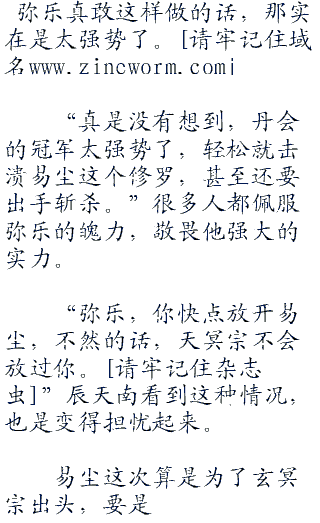 弥乐真敢这样做的话，那实
在是太强势了。[请牢记住域
名www.zincworm.com|
“真是没有想到，丹会
的冠军太强势了，轻松就击
溃易尘这个修罗，甚至还要
出手斩杀。”很多人都佩服
弥乐的魄力，敬畏他强大的
实力。
“弥乐，你快点放开易
尘，不然的话，天冥宗不会
放过你。[请牢记住杂志
虫]”辰天南看到这种情况，
也是变得担忧起来。
易尘这次算是为了玄冥
宗出头，要是